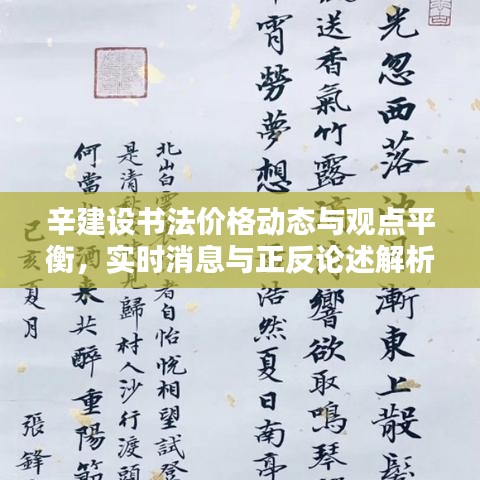 辛建设书法价格动态与观点平
衡，实时消息与正反论述解析
光忽西落
漸東上散髮
送香氣竹露
響欲取鳴琴
宵勞夢想
浩然夏日南亭
北山白雲
者自怡悅相望試登
是清秋
見歸村人沙行渡頭
何當
酒來共醉重陽節
己亥夏月
張鋒